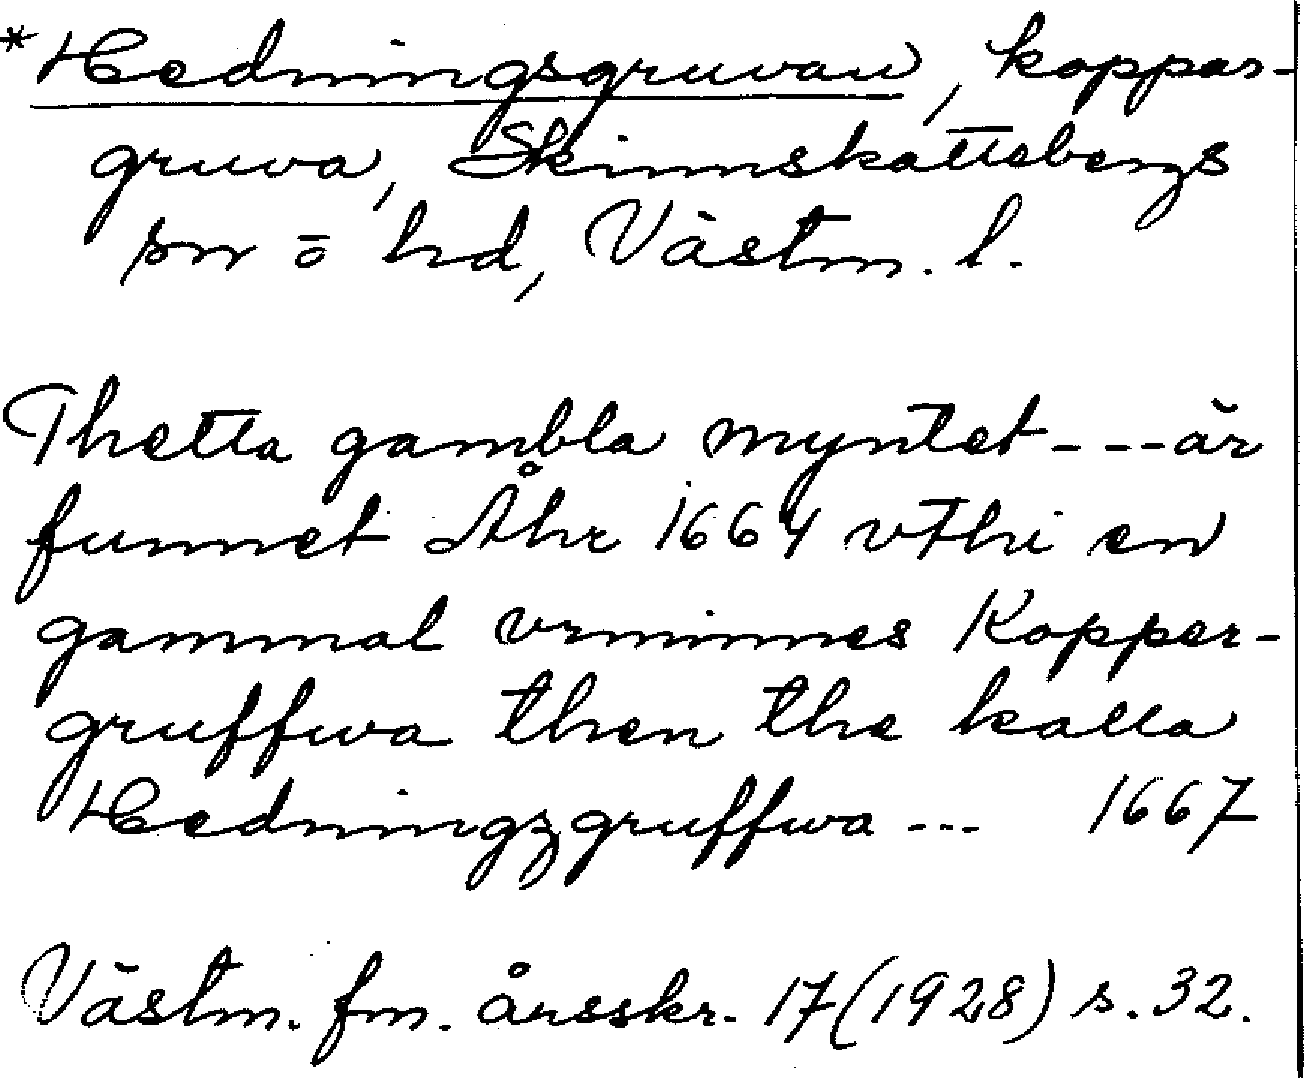 *Hedningsgruvan, koppar-
gruva, Skinnskattebergs
sn o hd, Västm. l.
Thetta gambla myntet---är
funnet Åhr 1664 vthi en
gammal vrminnes Kopper-
gruffwa then the kalla
Hedningzgruffwa --- 1667
Västm. fm. årsskr. 17(1928) s. 32.